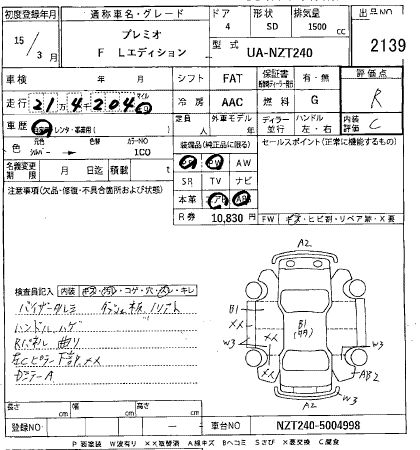 初度登録年月 通称車名・グレード ドア 形状 排気量 出品NO
15 / 3月 プレミオ 4 SD 1500 cc
F Lエディション 型式 UA-NZT240 2139
車検 年 月 シフト FAT 保証書 有・無 評価点
走行 21万4千204 マイル Km 冷房 AAC 燃料 G R
車歴 自家用・レンタ・事業用( ) 定員 人 外車モデル 年 ディーラー 並行 ハンドル 左・右 内装評価 C
色 元色 シルバー → 色替 カラーNO 1C0 装備品(純正品に限る) セールスポイント(正常に機能するもの)
PS PW AW
名義変更期限 月 日迄 積載 t SR TV ナビ
注意事項(欠品・修復・不具合箇所および状態) 本革 エアB ABS
R券 10,830 円 FW キズ・ヒビ割・リペア跡・X要
A2
検査員記入 内装 キズ・汚れ・コゲ・穴・スレ・キレ
バイザーダレミ ダッシュ板ノリアト
ハンドルハゲ
Rパネル曲り
左Cピラー下部メメ
DミラーA
B1
XX
W3
B1
XX
XX
W3
AB2
W3
A2
長さ cm 幅 cm 高さ cm
登録NO — 車台NO NZT240-5004998
P要塗装 W波有り XX取替済 A線キズ Bヘコミ Sさび X要交換 C腐食